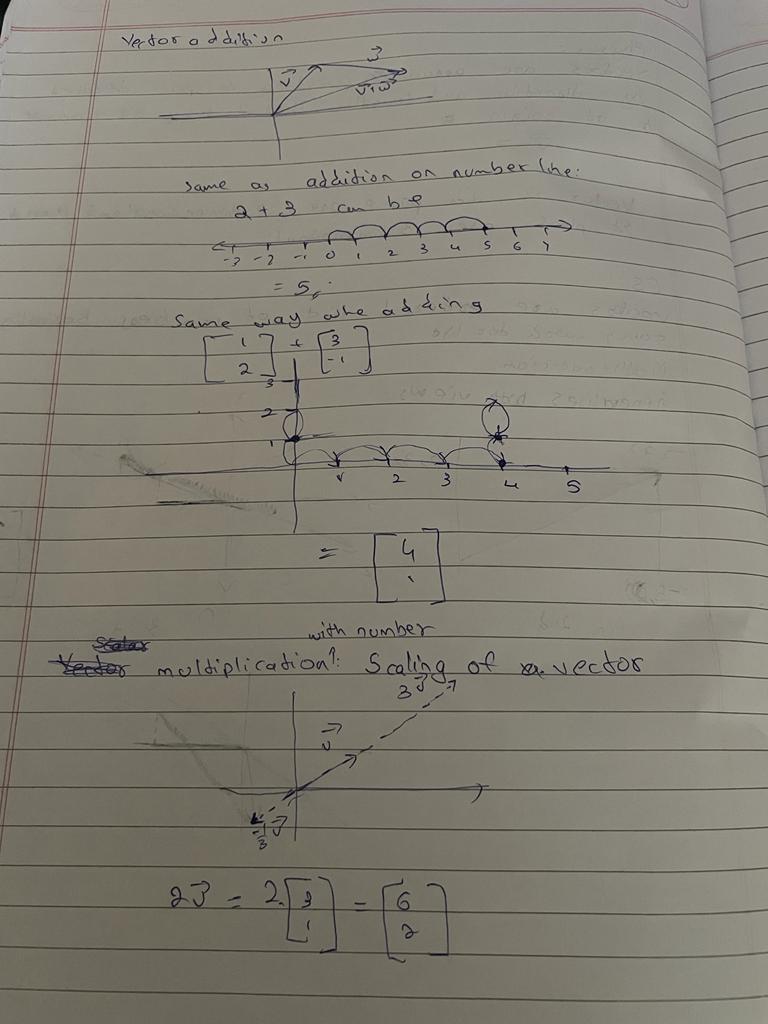 Vector addition
v⃗ w⃗
v+w⃗
Same as addition on number line:
2 + 3 can be
-3 -2 -1 0 1 2 3 4 5 6 7
= 5
Same way whe adding
[1 2] + [3 -1]
3
2
1
1 2 3 4 5
= [4 1]
with number
multiplication: Scaling of a vector
3v⃗
v⃗
-1/3 v⃗
2v⃗ = 2. [3 1] = [6 2]